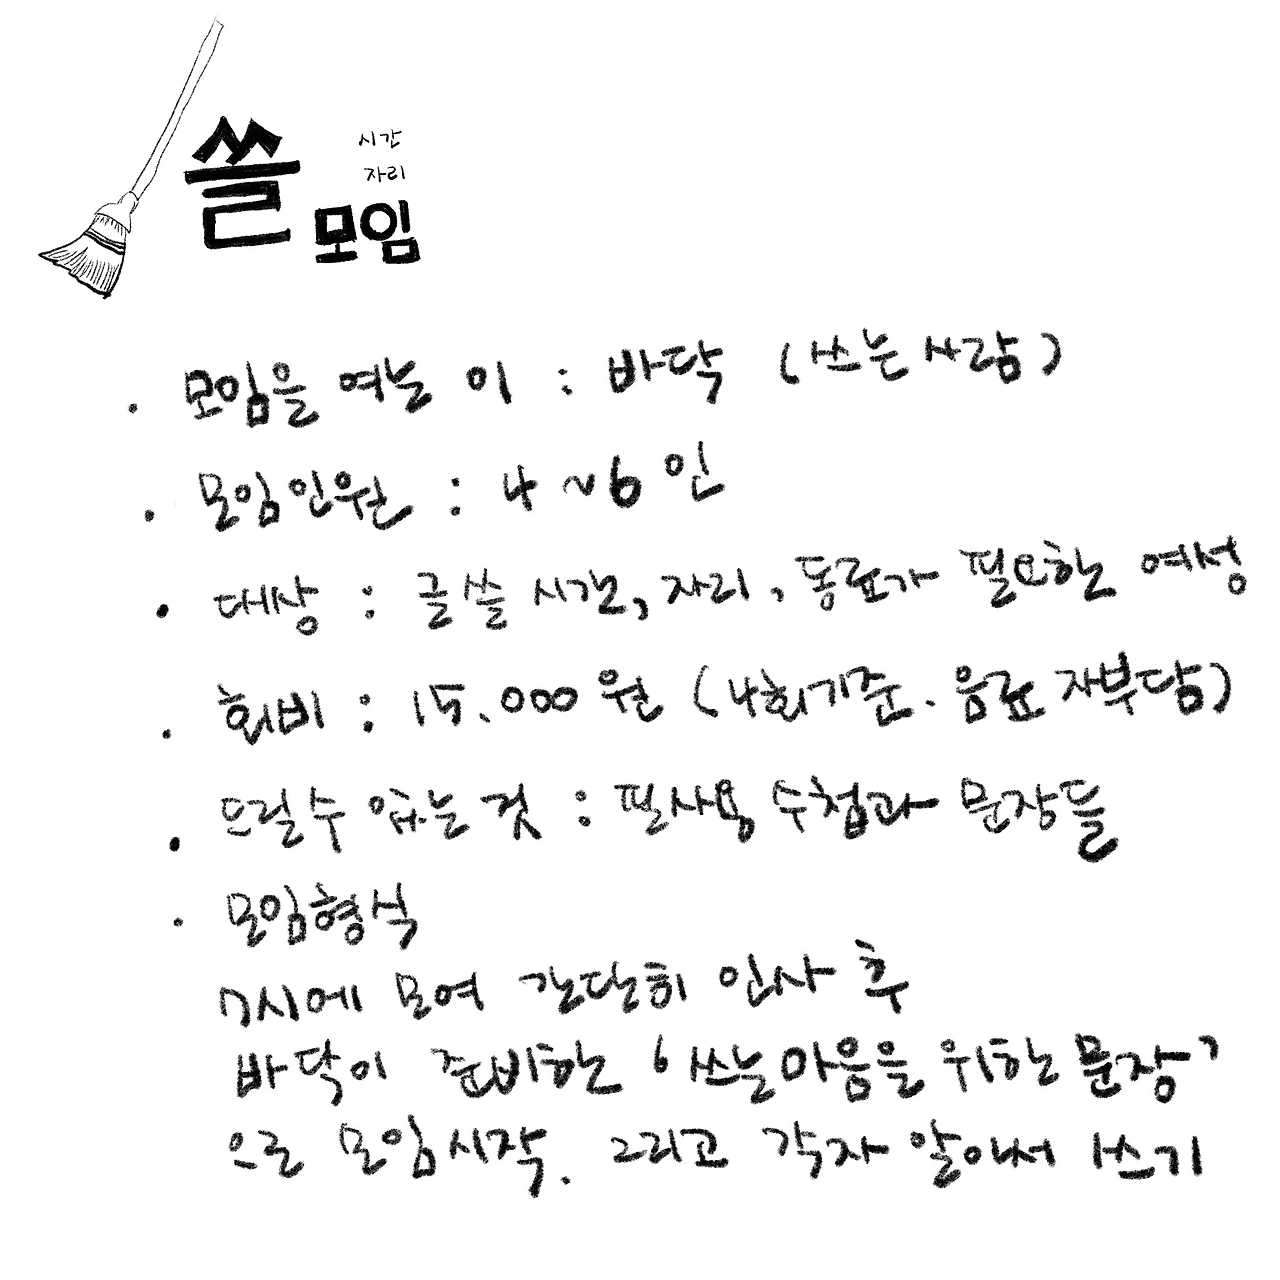 쓸
시간
자리
모임
· 모임을 여는 이 : 바닥 (쓰는 사람)
· 모임인원 : 4~6인
· 대상 : 글쓸 시간, 자리, 동료가 필요한 여성
· 회비 : 15.000원 (4회기준. 음료 자부담)
· 드릴 수 있는 것 : 필사용 수첩과 문장들
· 모임형식
7시에 모여 간단히 인사 후
바닥이 준비한 '쓰는 마음을 위한 문장'
으로 모임시작. 그리고 각자 알아서 쓰기